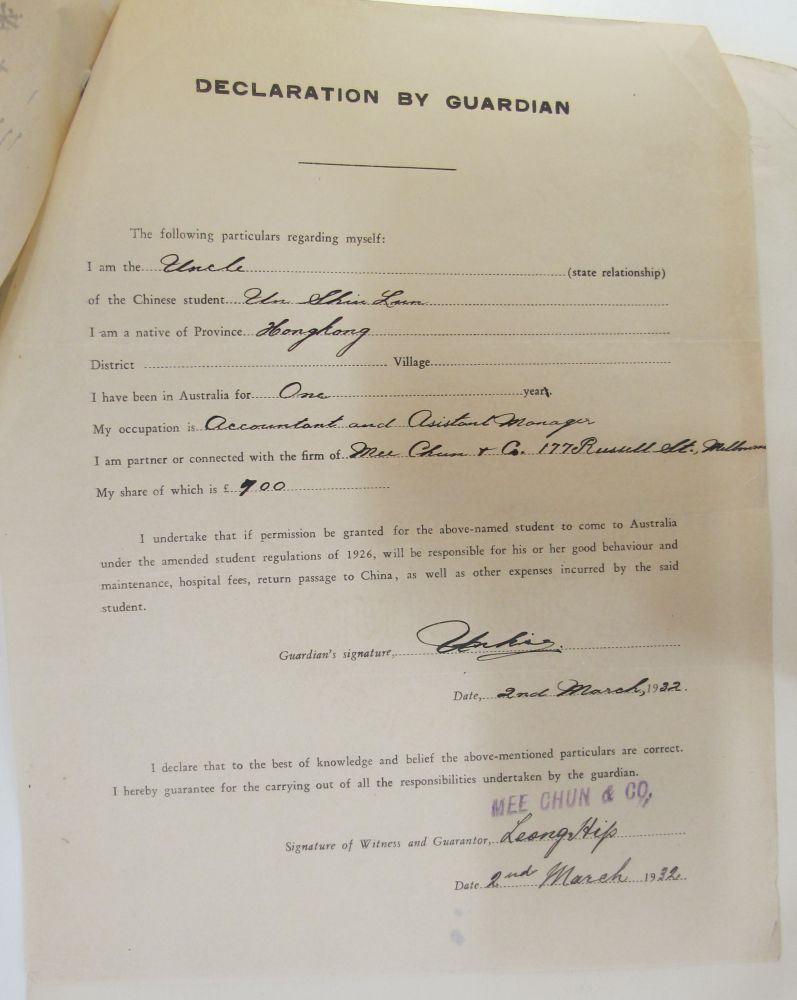 DECLARATION BY GUARDIAN
The following particulars regarding myself:
I am the Uncle (state relationship)
of the Chinese student Un Shiu Lun
I am a native of Province Hongkong
District Village
I have been in Australia for One year.
My occupation is Accountant and Asistant Manager
I am partner or connected with the firm of Mee Chun & Co. 177 Russell St., Melbourne
My share of which is £ 900
I undertake that if permission be granted for the above-named student to come to Australia
under the amended student regulations of 1926, will be responsible for his or her good behaviour and
maintenance, hospital fees, return passage to China, as well as other expenses incurred by the said
student.
Guardian's signature,
Date, 2nd March, 1932.
I declare that to the best of knowledge and belief the above-mentioned particulars are correct.
I hereby guarantee for the carrying out of all the responsibilities undertaken by the guardian.
MEE CHUN & CO,
Signature of Witness and Guarantor, Leong Hip
Date 2nd March 1932.